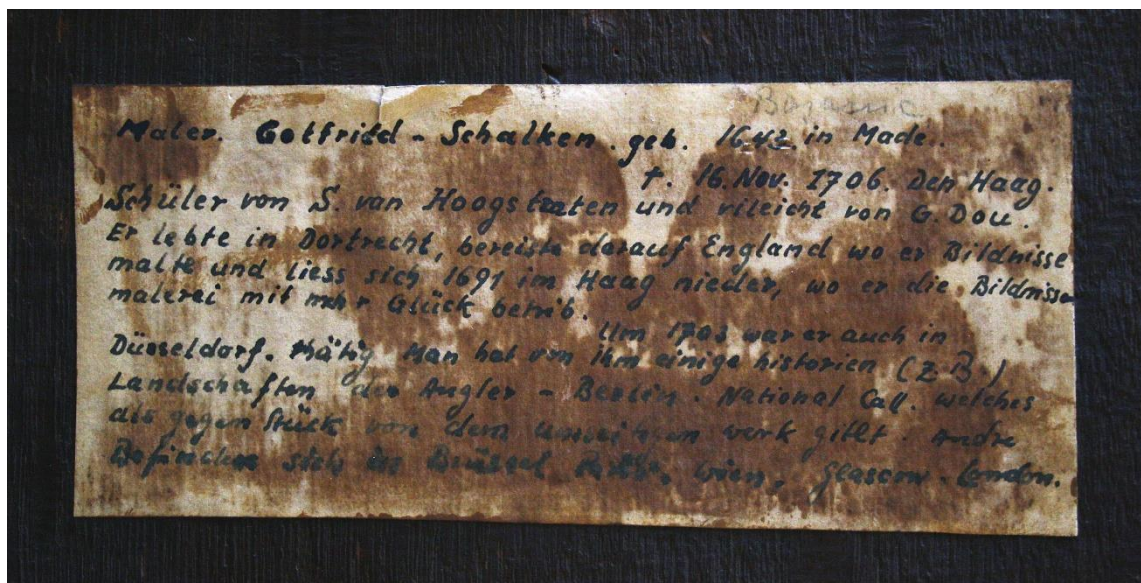 Maler. Gotfried - Schalken. geb. 1643 in Made.
†. 16. Nov. 1706. Den Haag.
Schüler von S. van Hoogstraten und vileicht von G. Dou.
Er lebte in Dortrecht, bereiste darauf England wo er Bildnisse
malte und liess sich 1691 im Haag nieder, wo er die Bildnisse
malerei mit mehr Glück betrib.
Um 1703 war er auch in
Düsseldorf. thätig Man hat von ihm einige historien (z.B.)
Landschaften der Angler - Berlin. National Gall. welches
als gegen Stück von dem werk gillt. Andre
Befinden sich in Brüssel, Wien, Glascow - London.